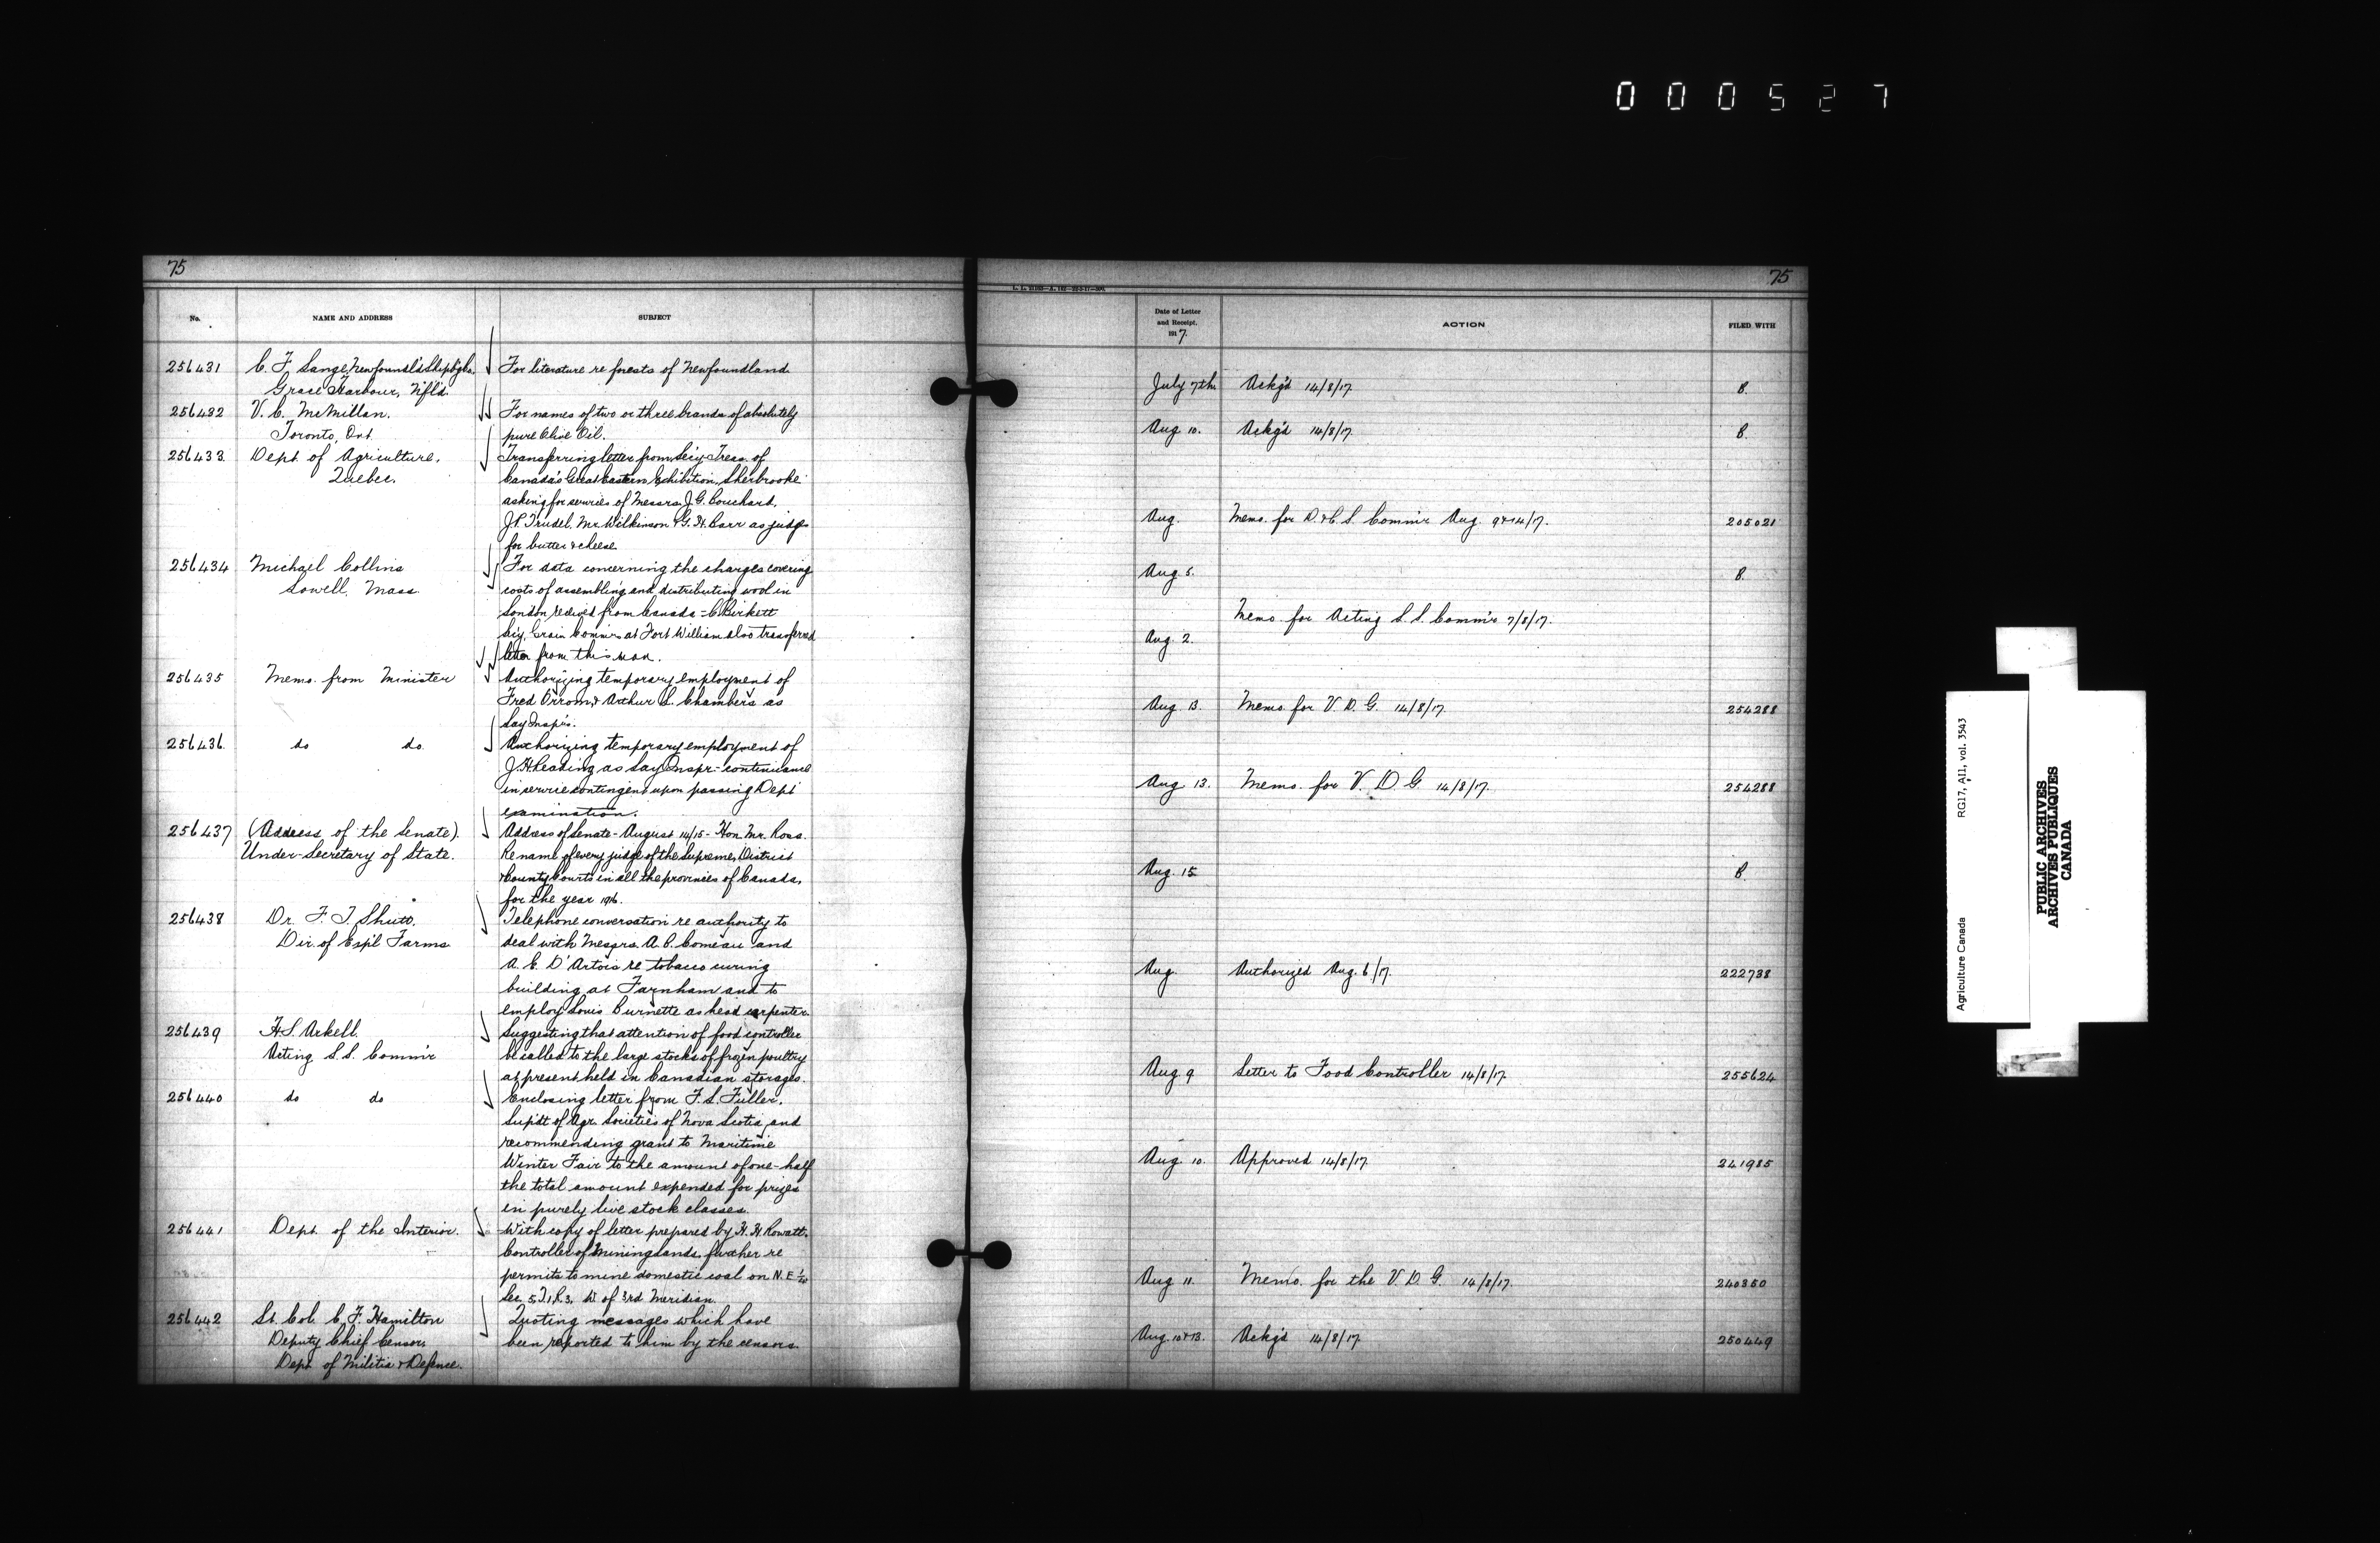 000527
75
No.
NAME AND ADDRESS
SUBJECT
256431
C. F. Lange, Newfoundl'd Shipb'g Co.
Grace Harbour, Nfld.
For literature re forests of Newfoundland
256432
V. C. McMillan.
Toronto, Ont.
For names of two or three brands of absolutely
pure Olive Oil.
256433
Dept. of Agriculture,
Quebec.
Transferring letter from Sec'y-Treas. of
Canada's Great Eastern Exhibition, Sherbrooke
asking for services of Messrs J. G. Bouchard,
J. P. Trudel, Mr. Wilkinson & G. H. Barr as judges
for butter & cheese
256434
Michael Collins
Lowell, Mass
For data concerning the charges covering
costs of assembling and distributing wool in
London received from Canada - C. Birkett
Sec'y. Grain Comm'n at Fort William also transferred
letter from this man.
256435
Memo. from Minister
Authorizing temporary employment of
Fred & Arthur S. Chambers as
Lay Insp'rs.
256436
do do
Authorizing temporary employment of
J. H. Leading as Lay Inspr - continuance
in service contingent upon passing Dept
examination.
256437
(Address of the Senate)
Under-Secretary of State.
Address of Senate - August 14/15 - Hon. Mr. Ross.
Re name of every judge of the Supreme, District
& County Courts in all the provinces of Canada,
for the year 1916.
256438
Dr. F. T. Shutt.
Dir. of Exp'l Farms
Telephone conversation re authority to
deal with Messrs. A. C. Comeau and
A. E. D'Artois re tobacco curing
building at Farnham and to
employ Louis Burnette as head carpenter.
256439
H. S. Arkell.
Acting L. S. Comm'r
Suggesting that attention of food controller
be called to the large stocks of frozen poultry
at present held in Canadian storages.
256440
do do
Enclosing letter from F. L. Fuller,
Supdt of Agr. Societies of Nova Scotia, and
recommending grant to Maritime
Winter Fair to the amount of one-half
the total amount expended for prizes
in purely live stock classes.
256441
Dept. of the Interior.
With copy of letter prepared by H. H. Rowatt,
Controller of Mining Lands, further re
permits to mine domestic coal on N. E. 1/4
Sec. 5, T. 1, R. 3, W. of 3rd Meridian.
256442
Lt. Col. C. F. Hamilton
Deputy Chief Censor,
Dept. of Militia & Defence.
Quoting messages which have
been reported to him by the censors.
75
Date of Letter
and Receipt.
1917.
ACTION
FILED WITH
July 7th Ackg'd 14/8/17. B.
Aug 10. Ackg'd 14/8/17. B.
Aug. Memo. for D. & C. S. Comm'r Aug. 9 & 14/17. 205021
Aug. 5. B.
Memo. for Acting L. S. Comm'r 7/8/17.
Aug. 2.
Aug 13. Memo. for V. D. G. 14/8/17. 254288
Aug 13. Memo. for V. D. G 14/8/17. 254288
Aug. 15 B.
Aug. Authorized Aug. 6/17. 222738
Aug. 9 Letter to Food Controller 14/8/17 255624
Aug. 10. Approved 14/8/17 241985
Aug 11. Memo. for the V. D. G. 14/8/17. 240350
Aug. 10 & 13. Ackg'd 14/8/17. 250449
Agriculture Canada RG17, AII, vol. 3543
PUBLIC ARCHIVES
ARCHIVES PUBLIQUES
CANADA